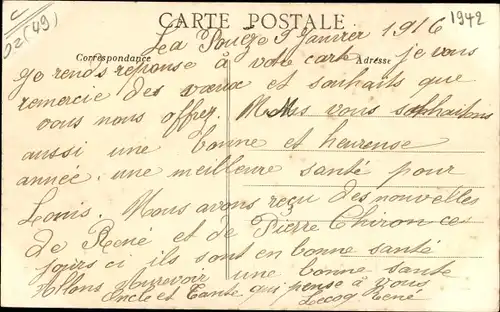 CARTE POSTALE
1942
02(49)
La Poueze 9 Janvier 1916
Correspondance
Adresse
Je rends réponse à votre carte je vous
remercie des vœux et souhaits que
vous nous offrez. Nous vous souhaitons
aussi une bonne et heureuse
année. une meilleure santé pour
Louis. Nous avons reçu des nouvelles
de René et de Pierre Chiron ce
jours ci ils sont en bonne santé
Allons Aurevoir une bonne santé
Oncle et Tante qui pense à vous
Lecoq René